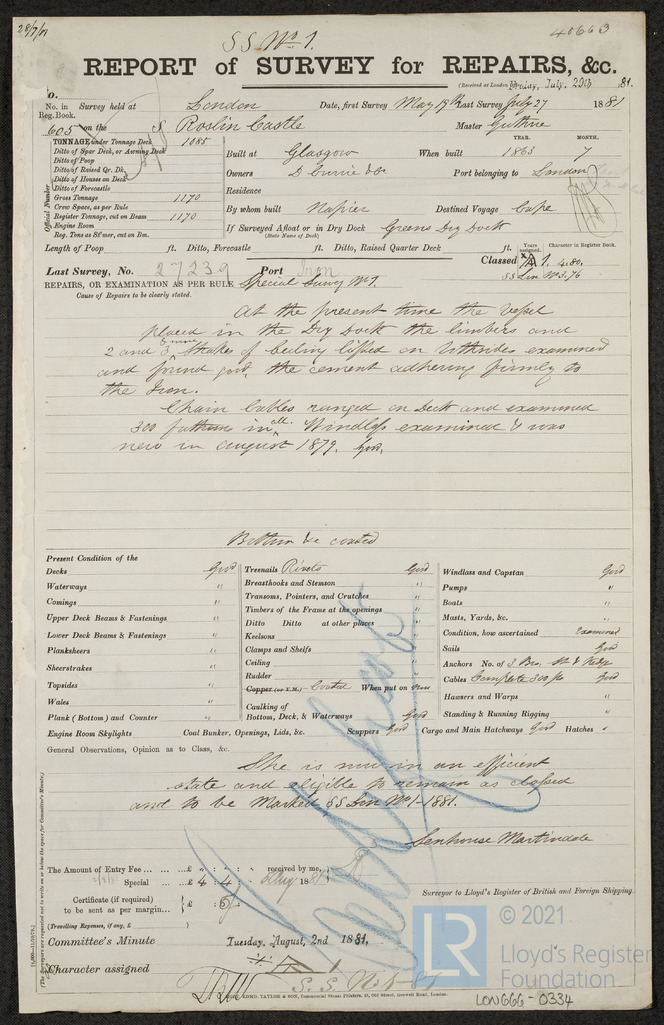 28/7/81
40663
S S No 1.
REPORT of SURVEY for REPAIRS, &c.
(Received at London Friday, July 29th 81.
No. in Reg. Book. Survey held at London Date, first Survey May 19 Last Survey July 27 1881
605 on the S Roslin Castle Master Guthrie
TONNAGE under Tonnage Deck 1085
Ditto of Spar Deck, or Awning Deck
Ditto of Poop
Ditto of Raised Qr. Dk.
Ditto of Houses on Deck
Ditto of Forecastle
Gross Tonnage 1170
Crew Space, as per Rule
Register Tonnage, cut on Beam 1170
Engine Room
Reg. Tons as St'mer, cut on Bm.
Official Number
YEAR. MONTH.
Built at Glasgow When built 1863 7
Owners D Currie & Co Port belonging to London
Residence
By whom built Napier Destined Voyage Cape
If Surveyed Afloat or in Dry Dock Greens Dry Dock
(State Name of Dock)
Length of Poop ft. Ditto, Forecastle ft. Ditto, Raised Quarter Deck ft.
Years assigned. Character in Register Book.
Last Survey, No. 27239 Port Iron Classed A 1. 4.80.
SS Lon No 3.76
REPAIRS, OR EXAMINATION AS PER RULE Special Survey No 1.
Cause of Repairs to be clearly stated.
At the present time the Vessel
placed in the Dry Dock the limbers and
2 and 3 Strakes of Ceiling lifted on both sides examined
and found good, the cement adhering firmly to
the Iron.
Chain Cables ranged on Deck and examined
300 fathoms in all. Windlass examined & was
new in August 1879. Good.
Bottom &c coated
Present Condition of the
Decks Good
Waterways "
Comings "
Upper Deck Beams & Fastenings "
Lower Deck Beams & Fastenings "
Planksheers "
Sheerstrakes "
Topsides "
Wales "
Plank (Bottom) and Counter "
Treenails Rivets Good
Breasthooks and Stemson "
Transoms, Pointers, and Crutches "
Timbers of the Frame at the openings "
Ditto Ditto at other places "
Keelsons "
Clamps and Shelfs "
Ceiling "
Rudder "
Copper (or Y.M.) Coated When put on Now
Caulking of
Bottom, Deck, & Waterways Good
Windlass and Capstan Good
Pumps "
Boats "
Masts, Yards, &c. "
Condition, how ascertained Examined
Sails Good
Anchors No. of 3 Bow. St & Kedge
Cables Complete 300 fm Good
Hawsers and Warps "
Standing & Running Rigging "
Engine Room Skylights Coal Bunker, Openings, Lids, &c. Scuppers Good Cargo and Main Hatchways Good Hatches "
General Observations, Opinion as to Class, &c.
She is now in an efficient
state and eligible to remain as classed
and to be Marked SS Lon No 1-1881.
Senhouse Martindale
The Amount of Entry Fee ... £ " : " : " received by me,
Special ... £ 4 : 4 : 1881
Certificate (if required) to be sent as per margin... £ : 5/
(Travelling Expenses, if any, £ )
Surveyor to Lloyd's Register of British and Foreign Shipping.
Committee's Minute Tuesday, August, 2nd 1881.
Character assigned A 1
S. S. No 1-81
(The Surveyors are requested not to write on or below the space for Committee's Minute.)
EDWD. TAYLOR & SON, Commercial Steam Printers, 13, Old Street, Goswell Road, London.
LR
© 2021
Lloyd's Register
Foundation
LON666-0334